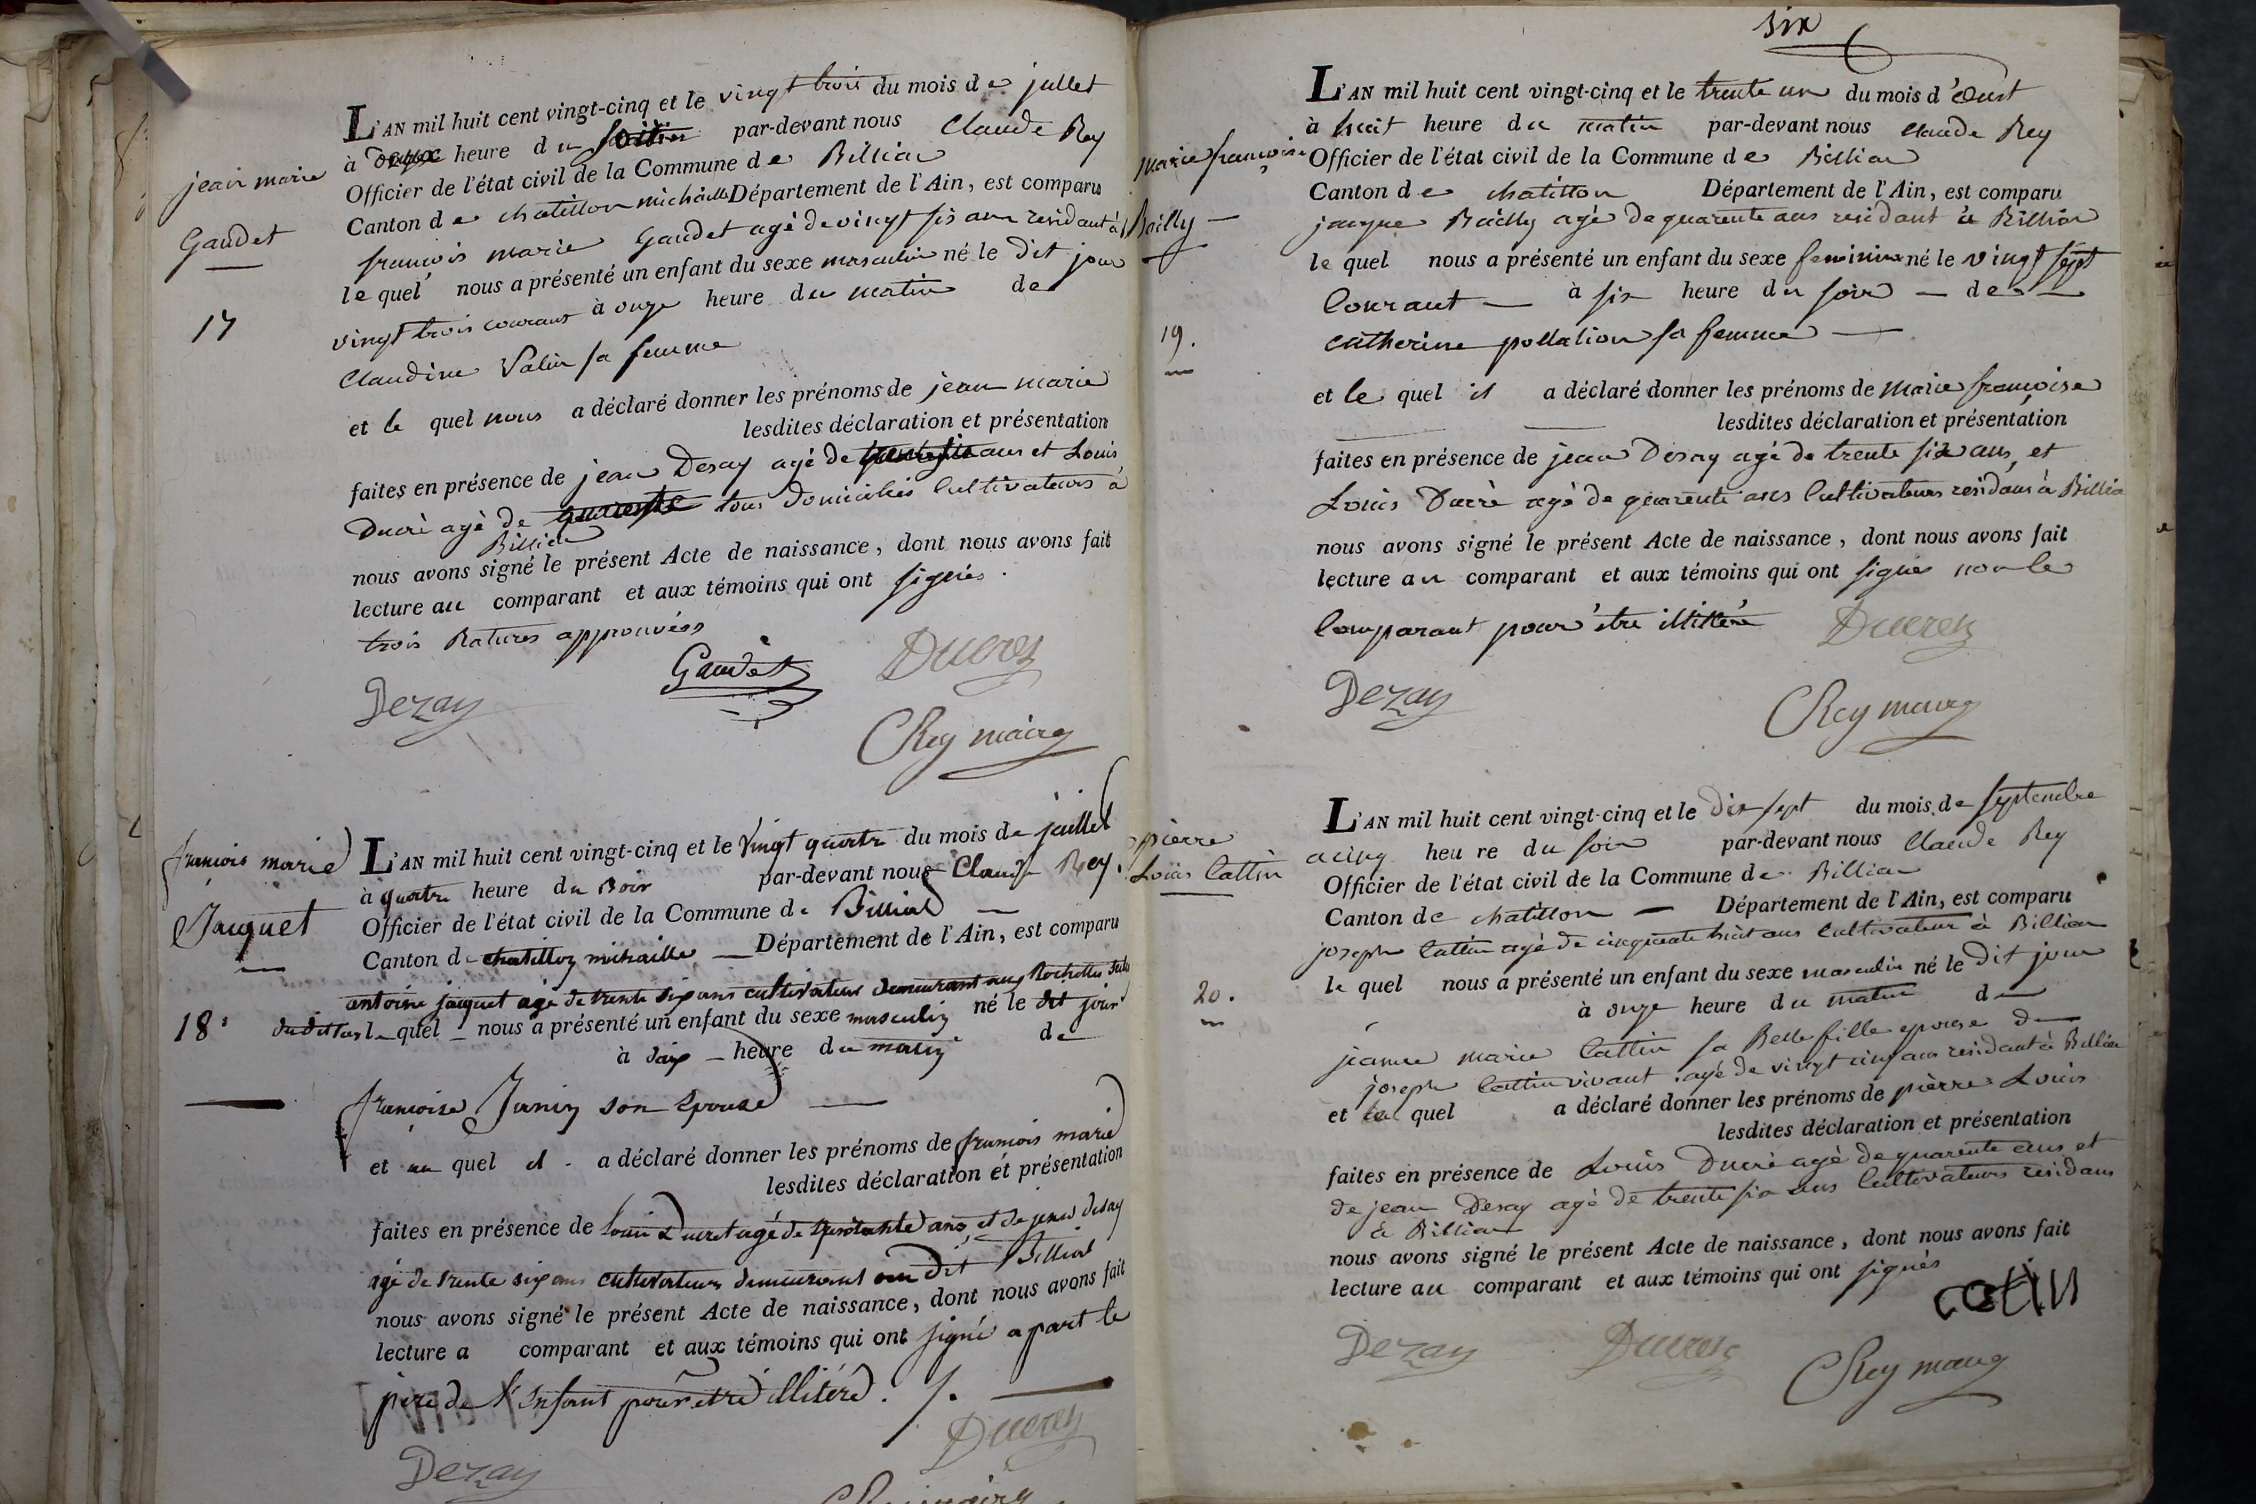 jean marie
Gaudet
17
L'AN mil huit cent vingt-cinq et le vingt trois du mois de jullet
à heure du par-devant nous Claude Rey
Officier de l'état civil de la Commune de Billiac
Canton de chatillon michaille Département de l'Ain, est comparu
francois marie Gaudet agé de vingt sis ans residant à
le quel nous a présenté un enfant du sexe masculin né le dit jour
vingt trois courant à onze heure du matin de
Claudine Valin sa femme
et le quel nous a déclaré donner les prénoms de jean marie
lesdites déclaration et présentation
faites en présence de jean Desay agé de ans et Louis
Ducrè agé de tous domiciliés Cultivateurs à
Billiac
nous avons signé le présent Acte de naissance, dont nous avons fait
lecture au comparant et aux témoins qui ont signés.
trois Ratures approuvées
Gaudet Ducrez
Dezay
C Rey maire
francois marie
Jaquet
18
L'AN mil huit cent vingt-cinq et le vingt quatre du mois de juillet
à quatre heure du Soir par-devant nous Claude Rey.
Officier de l'état civil de la Commune de Billiat
Canton de chatillon michaille Département de l'Ain, est comparu
antoine jaquet agé de trente six ans cultivateur demeurant aux Rochettes
du dit lieu le quel nous a présenté un enfant du sexe masculin né le dit jour
à dix heure du matin de
francoise Janin son Epouse
et au quel il a déclaré donner les prénoms de francois marie
lesdites déclaration et présentation
faites en présence de Louis Ducret agé de quarante ans et de jean desay
agé de trente six ans cultivateurs demeurant au dit Billiat
nous avons signé le présent Acte de naissance, dont nous avons fait
lecture a comparant et aux témoins qui ont signé apart le
père de l'Enfant pour etre illitéré.
Ducrez
Dezay
six
marie françoise
Bailly
19.
L'AN mil huit cent vingt-cinq et le trente un du mois d'Oust
à huit heure du matin par-devant nous Claude Rey
Officier de l'état civil de la Commune de Billiac
Canton de chatillon Département de l'Ain, est comparu
jacque Bailly agé de quarente ans residant à Billiac
le quel nous a présenté un enfant du sexe feminin né le vingt sept
Courant à six heure du soir de
catherine pollation sa femme
et le quel il a déclaré donner les prénoms de marie françoise
lesdites déclaration et présentation
faites en présence de jean Desay agé de trente six ans, et
Louis Ducrè agé de quarente ans Cultivateurs residans à Billia
nous avons signé le présent Acte de naissance, dont nous avons fait
lecture au comparant et aux témoins qui ont signés non le
Comparant pour être illittéré Ducrez
Dezay
C Rey maire
pierre
Louis Cattin
20.
L'AN mil huit cent vingt-cinq et le dix sept du mois de septembre
a cinq heure du soir par-devant nous Claude Rey
Officier de l'état civil de la Commune de Billiac
Canton de chatillon Département de l'Ain, est comparu
joseph Cattin agé de cinquante huit ans Cultivateur à Billiac
le quel nous a présenté un enfant du sexe masculin né le dit jour
à onze heure du matin de
jeanne marie Cattin sa Belle fille epouse de
joseph Cattin vivant agé de vingt cinq ans residant à Billiac
et le quel a déclaré donner les prénoms de pièrre Louis
lesdites déclaration et présentation
faites en présence de Louis Ducrè agé de quarente ans et
de jean Desay agé de trente six ans Cultivateurs residans
à Billiac
nous avons signé le présent Acte de naissance, dont nous avons fait
lecture au comparant et aux témoins qui ont signés
catin
Dezay Ducrez
C Rey maire